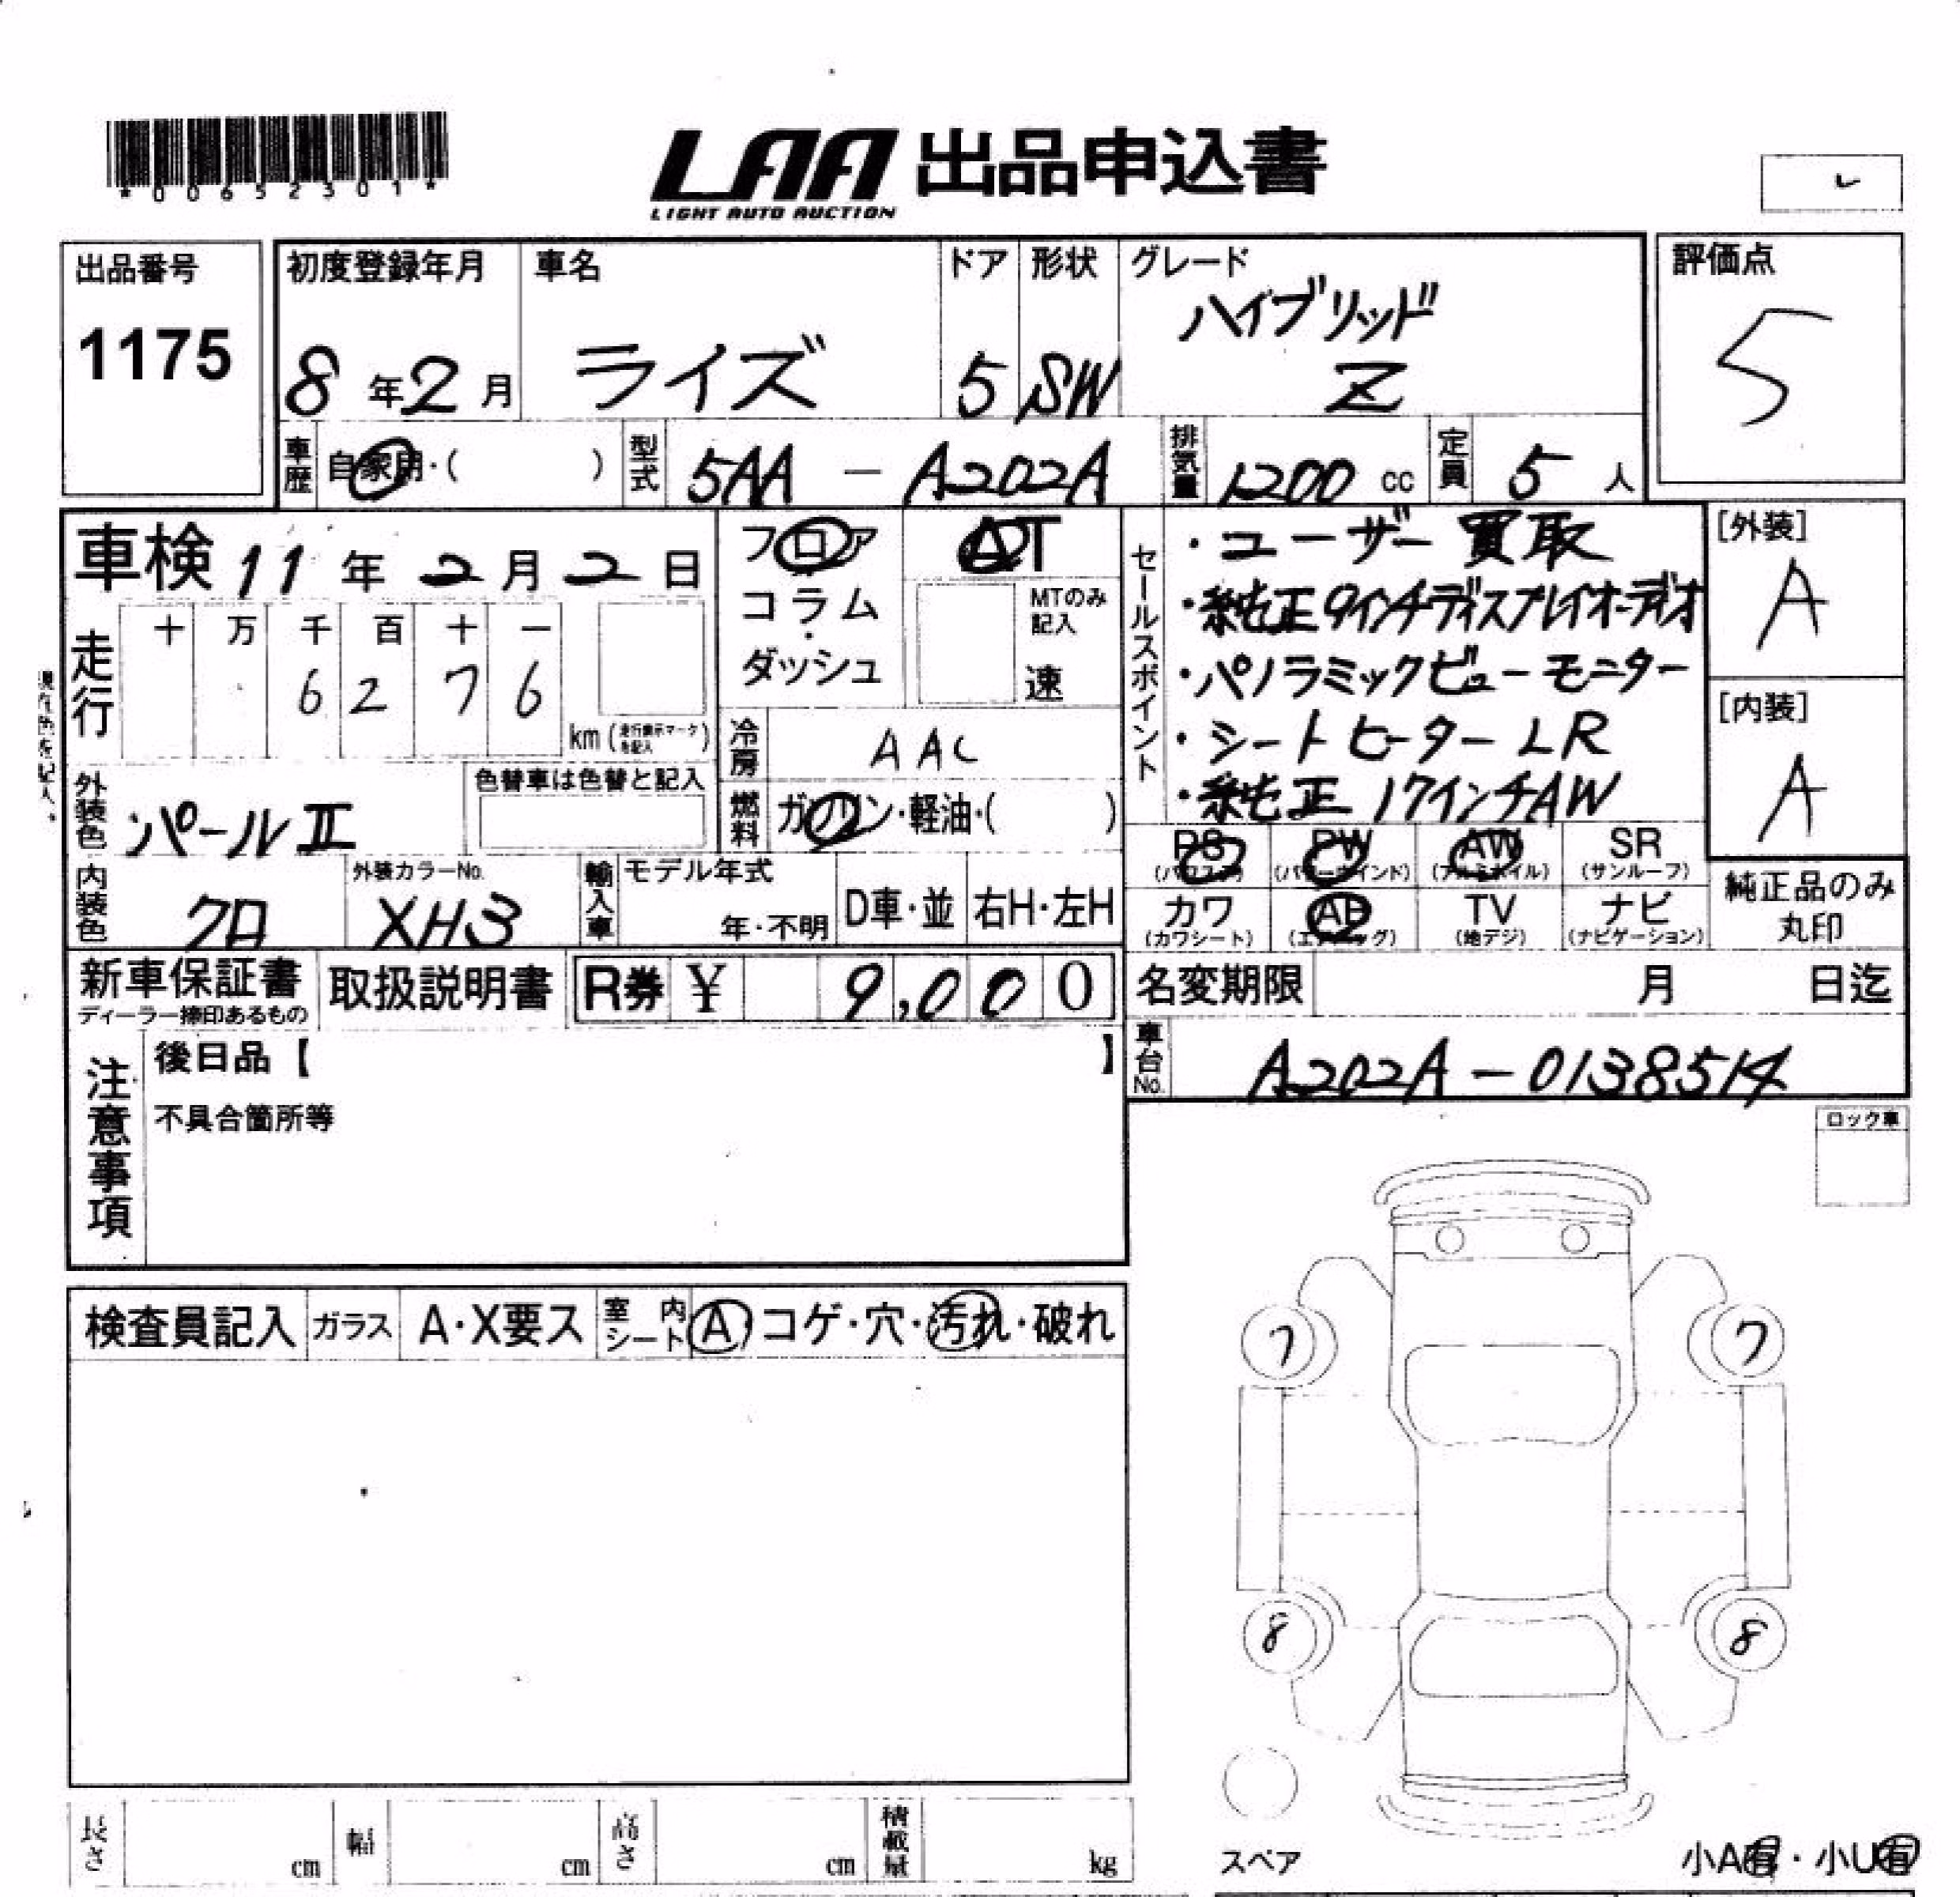 *00652301*
LAA 出品申込書
LIGHT AUTO AUCTION
出品番号
1175
初度登録年月
8年2月
車名
ライズ
ドア
5
形状
SW
グレード
ハイブリッド
Z
評価点
5
車歴
自家用・( )
型式
5AA - A202A
排気量
1200 cc
定員
5 人
車検 11年2月2日
フロア
コラム
・
ダッシュ
AT
MTのみ
記入
速
走行
十 万 千 百 十 一
6 2 7 6
km (走行表示マークを記入)
冷房
AAC
燃料
ガソリン・軽油・( )
セールスポイント
・ユーザー買取
・純正9インチディスプレイオーディオ
・パノラミックビューモニター
・シートヒーターLR
・純正17インチAW
[外装]
A
[内装]
A
外装色
パールⅡ
色替車は色替と記入
内装色
クロ
外装カラーNo.
XH3
輸入車
モデル年式
年・不明
D車・並
右H・左H
PS
(パワステ)
PW
(パワーウインド)
AW
(アルミホイル)
SR
(サンルーフ)
カワ
(カワシート)
AB
(エアバッグ)
TV
(地デジ)
ナビ
(ナビゲーション)
純正品のみ
丸印
新車保証書
ディーラー捺印あるもの
取扱説明書
R券 ¥ 9,000
名変期限 月 日迄
車台No.
A202A-0138514
注意事項
後日品【 】
不具合箇所等
ロック車
検査員記入
ガラス
A・X要ス
室内シート
A・コゲ・穴・汚れ・破れ
7
7
8
8
スペア
小A有・小U有
長さ cm
幅 cm
高さ cm
積載量 kg